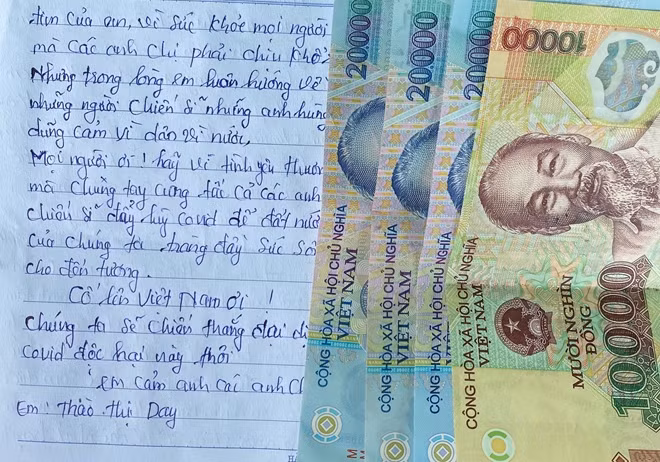 của em, vì sức khỏe mọi người
mà các anh chị phải chịu khổ
Nhưng trong lòng em luôn hướng về
những người chiến sĩ những anh hùng
dũng cảm vì dân vì nước,
Mọi người ơi! hãy vì tình yêu thươn
mà chung tay cùng tất cả các anh
chiến sĩ đẩy lùi covid để đất nước
của chúng ta tràng đầy sức số
cho đến tương.
Cố lên Việt Nam ơi !
Chúng ta sẽ chiến thắng đại dị
Covid độc hại này thôi
em cảm anh các anh Ch
Em: Thào Thị Day
20000
CỘNG HÒA XÃ HỘI CHỦ NGHĨA
VIỆT NAM
20000
CỘNG HÒA XÃ HỘI CHỦ NGHĨA
VIỆT NAM
20000
CỘNG HÒA XÃ HỘI CHỦ NGHĨA
10000
CỘNG HÒA XÃ HỘI CHỦ NGHĨA
VIỆT NAM
MƯỜI NGHÌN
ĐỒNG
10000